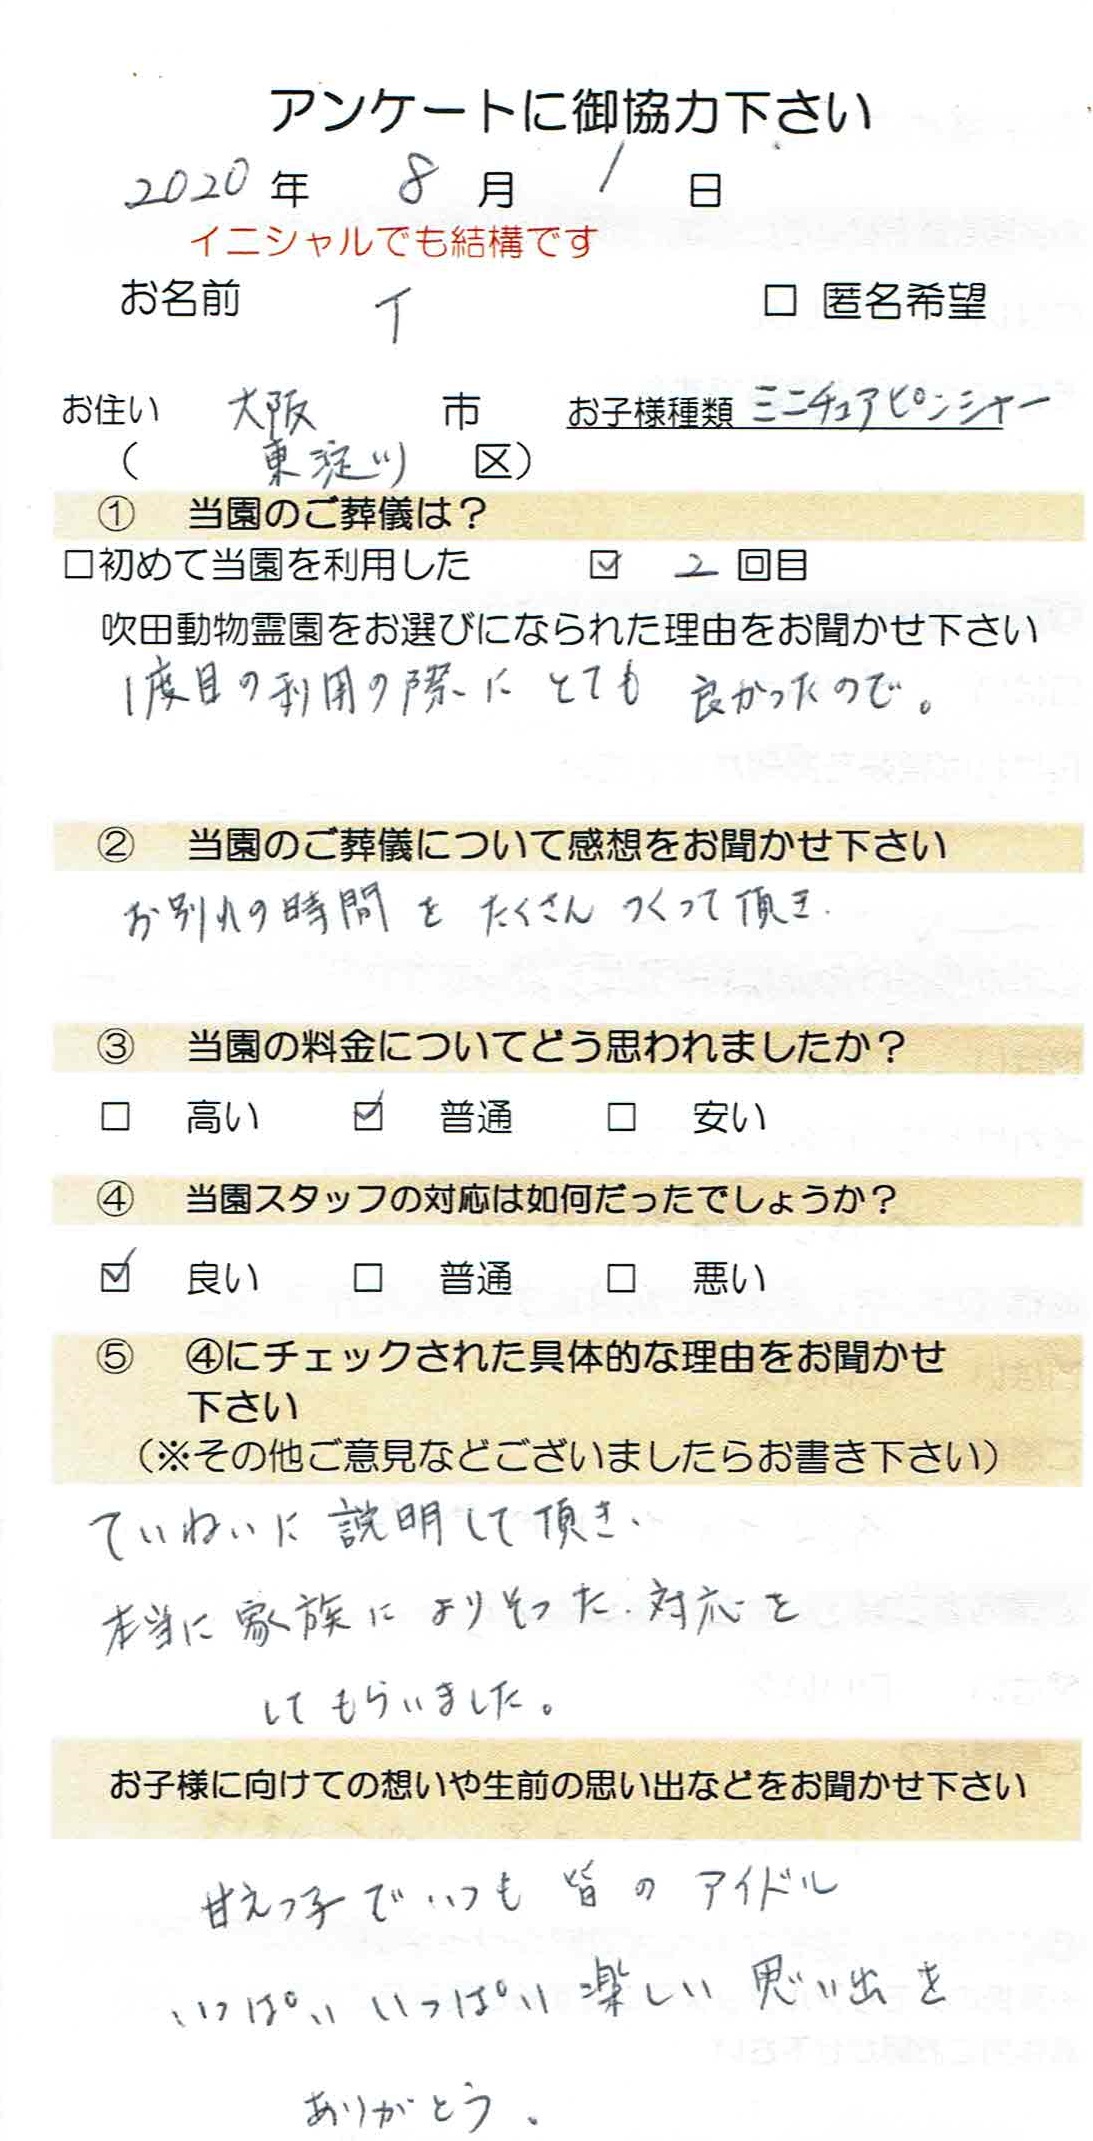 アンケートに御協力下さい
2020 年 8 月 1 日
イニシャルでも結構です
お名前 イ □ 匿名希望
お住い 大阪 市 お子様種類 ミニチュアピンシャー
( 東淀川 区)
① 当園のご葬儀は？
□初めて当園を利用した ☑ 2 回目
吹田動物霊園をお選びになられた理由をお聞かせ下さい
1度目の利用の際に とても 良かったので。
② 当園のご葬儀について感想をお聞かせ下さい
お別れの時間を たくさん つくって頂き.
③ 当園の料金についてどう思われましたか？
□ 高い ☑ 普通 □ 安い
④ 当園スタッフの対応は如何だったでしょうか？
☑ 良い □ 普通 □ 悪い
⑤ ④にチェックされた具体的な理由をお聞かせ
下さい
（※その他ご意見などございましたらお書き下さい）
ていねいに 説明して頂き、
本当に 家族に よりそった 対応を
してもらいました。
お子様に向けての想いや生前の思い出などをお聞かせ下さい
甘えっ子で いつも 皆の アイドル
いっぱい いっぱい 楽しい 思い出を
ありがとう。